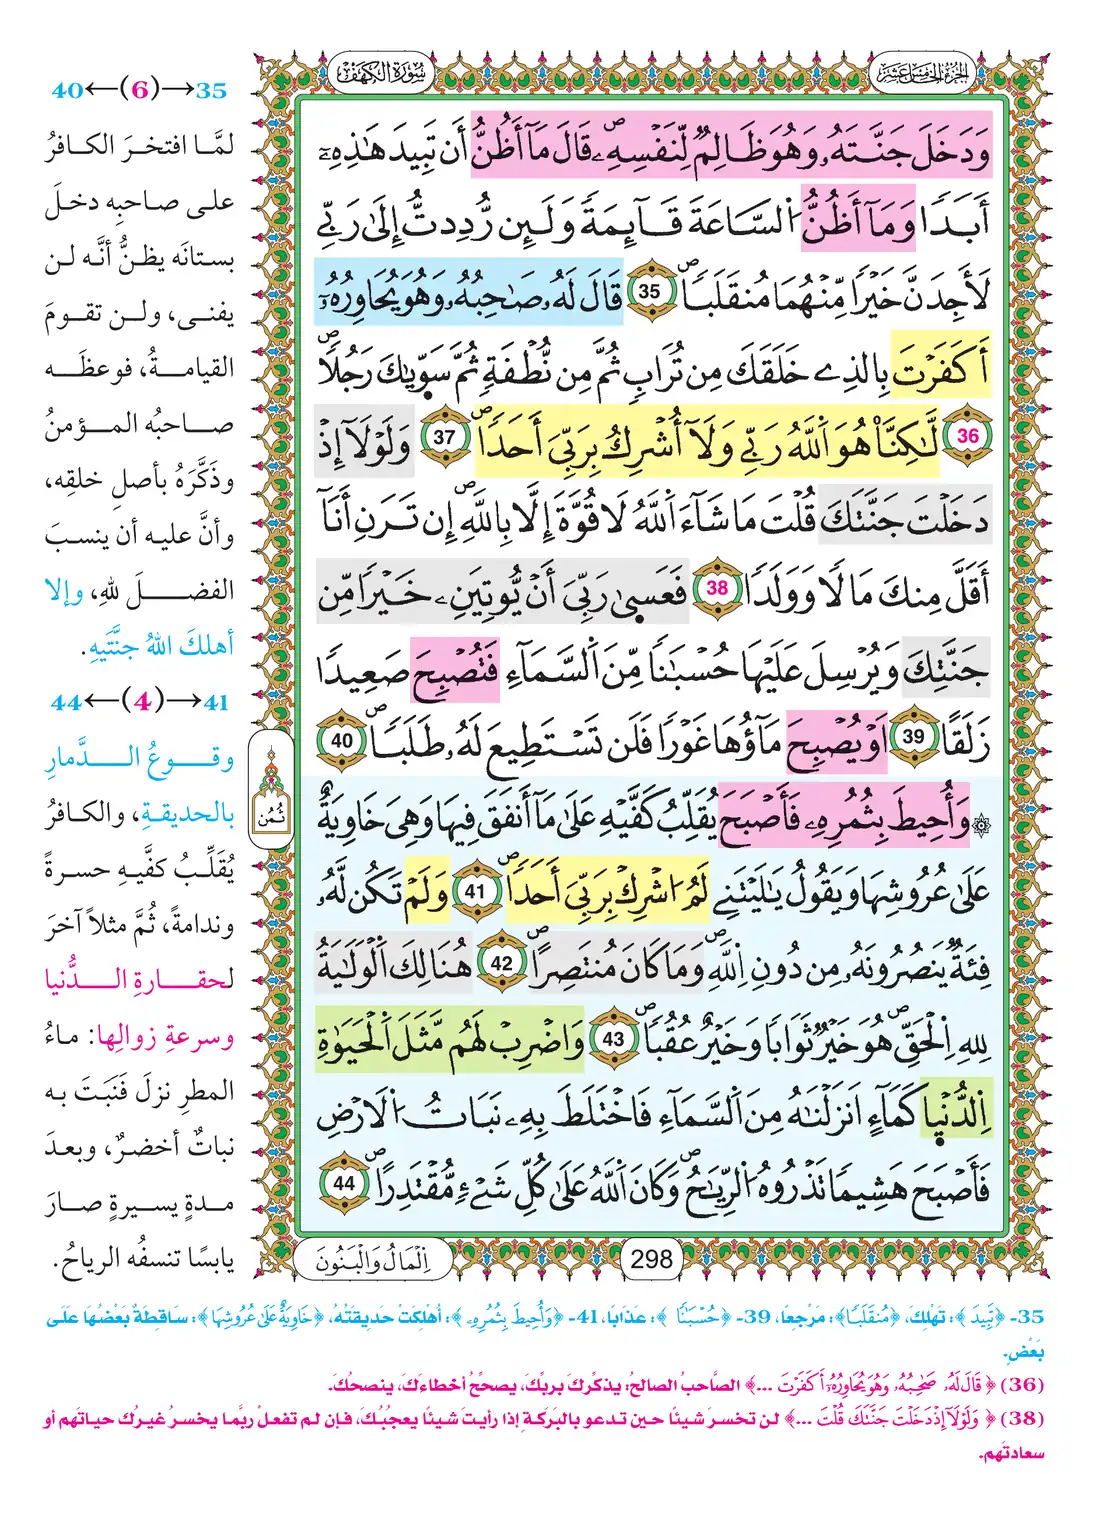 الجزء الخامس عشر
سورة الكهف
وَدَخَلَ جَنَّتَهُۥ وَهُوَ ظَالِمٞ لِّنَفْسِهِۦۖ قَالَ مَآ أَظُنُّ أَن تَبِيدَ هَٰذِهِۦٓ
أَبَدٗا وَمَآ أَظُنُّ اُ۬لسَّاعَةَ قَآئِمَةٗ وَلَئِن رُّدِدتُّ إِلَىٰ رَبِّے
لَأَجِدَنَّ خَيْرٗا مِّنْهُمَا مُنقَلَبٗاۖ 35 قَالَ لَهُۥ صَٰحِبُهُۥ وَهُوَ يُحَاوِرُهُۥٓ
أَكَفَرْتَ بِالذِے خَلَقَكَ مِن تُرَابٖ ثُمَّ مِن نُّطْفَةٖ ثُمَّ سَوّ۪يٰكَ رَجُلٗاۖ
36 لَّٰكِنَّا۠ هُوَ اَ۬للَّهُ رَبِّے وَلَآ أُشْرِكُ بِرَبِّيَ أَحَدٗاۖ 37 وَلَوْلَآ إِذْ
دَخَلْتَ جَنَّتَكَ قُلْتَ مَا شَآءَ اَ۬للَّهُ لَا قُوَّةَ إِلَّا بِاللَّهِۖ إِن تَرَنِ أَنَآ
أَقَلَّ مِنكَ مَالٗا وَوَلَدٗا 38 فَعَس۪ىٰ رَبِّيَ أَنْ يُّوتِيَنِۦ خَيْرٗا مِّن
جَنَّتِكَ وَيُرْسِلَ عَلَيْهَا حُسْبَٰنٗا مِّنَ اَ۬لسَّمَآءِ فَتُصْبِحَ صَعِيدٗا
زَلَقًا 39 اَوْ يُصْبِحَ مَآؤُهَا غَوْرٗا فَلَن تَسْتَطِيعَ لَهُۥ طَلَبٗاۖ 40
۞ وَأُحِيطَ بِثُمُرِهِۦ فَأَصْبَحَ يُقَلِّبُ كَفَّيْهِ عَلَىٰ مَآ أَنفَقَ فِيهَا وَهِيَ خَاوِيَةٌ
عَلَىٰ عُرُوشِهَا وَيَقُولُ يَٰلَيْتَنِے لَمُ اُشْرِكْ بِرَبِّيَ أَحَدٗاۖ 41 وَلَمْ تَكُن لَّهُۥ
فِئَةٞ يَنصُرُونَهُۥ مِن دُونِ اِ۬للَّهِۖ وَمَا كَانَ مُنتَصِرًاۖ 42 هُنَالِكَ اَ۬لْوَلَٰيَةُ
لِلهِ اِ۬لْحَقِّۖ هُوَ خَيْرٞ ثَوَابٗا وَخَيْرٌ عُقُبٗاۖ 43 وَاضْرِبْ لَهُم مَّثَلَ اَ۬لْحَيَوٰةِ
اِ۬لدُّنْي۪ا كَمَآءٍ اَنزَلْنَٰهُ مِنَ اَ۬لسَّمَآءِ فَاخْتَلَطَ بِهِۦ نَبَاتُ اُ۬لَارْضِ
فَأَصْبَحَ هَشِيمٗا تَذْرُوهُ اُ۬لرِّيَٰحُۖ وَكَانَ اَ۬للَّهُ عَلَىٰ كُلِّ شَےْءٖ مُّقْتَدِرًاۖ 44
298
اِ۬لْمَالُ وَالْبَنُونَ
ثُمُن
35→(6)←40
لمَّا افتخرَ الكافرُ
على صاحبِه دخلَ
بستانَه يظنُّ أنَّه لن
يفنى، ولن تقومَ
القيامةُ، فوعظَه
صاحبُه المؤمنُ
وذَكَّرَهُ بأصلِ خلقِه،
وأنَّ عليه أن ينسبَ
الفضلَ للهِ، وإلا
أهلكَ اللهُ جنَّتَيهِ.
41→(4)←44
وقوعُ الدَّمارِ
بالحديقةِ، والكافرُ
يُقَلِّبُ كفَّيهِ حسرةً
وندامةً، ثُمَّ مثلاً آخرَ
لحقارةِ الدُّنيا
وسرعةِ زوالِها: ماءُ
المطرِ نزلَ فَنَبَتَ به
نباتٌ أخضرُ، وبعدَ
مدةٍ يسيرةٍ صارَ
يابسًا تنسفُه الرياحُ.
35- ﴿تَبِيدَ﴾: تَهْلِكَ، ﴿مُنقَلَبٗا﴾: مَرْجِعًا، 39- ﴿حُسْبَٰنٗا﴾: عَذَابًا، 41- ﴿وَأُحِيطَ بِثُمُرِهِۦ﴾: أُهْلِكَتْ حَدِيقَتُهُ، ﴿خَاوِيَةٌ عَلَىٰ عُرُوشِهَا﴾: سَاقِطَةٌ بَعْضُهَا عَلَى
بَعْضٍ.
(36) ﴿قَالَ لَهُۥ صَٰحِبُهُۥ وَهُوَ يُحَاوِرُهُۥٓ أَكَفَرْتَ ...﴾ الصَّاحبُ الصالحُ: يذكِّركَ بربِّكَ، يصحِّحُ أخطاءَكَ، ينصحُكَ.
(38) ﴿وَلَوْلَآ إِذْ دَخَلْتَ جَنَّتَكَ قُلْتَ ...﴾ لن تخسرَ شيئًا حين تدعو بالبَركةِ إذا رأيتَ شيئًا يعجبُكَ، فإن لم تفعلْ ربَّما يخسرُ غيرُكَ حياتَهم أو
سعادتَهم.